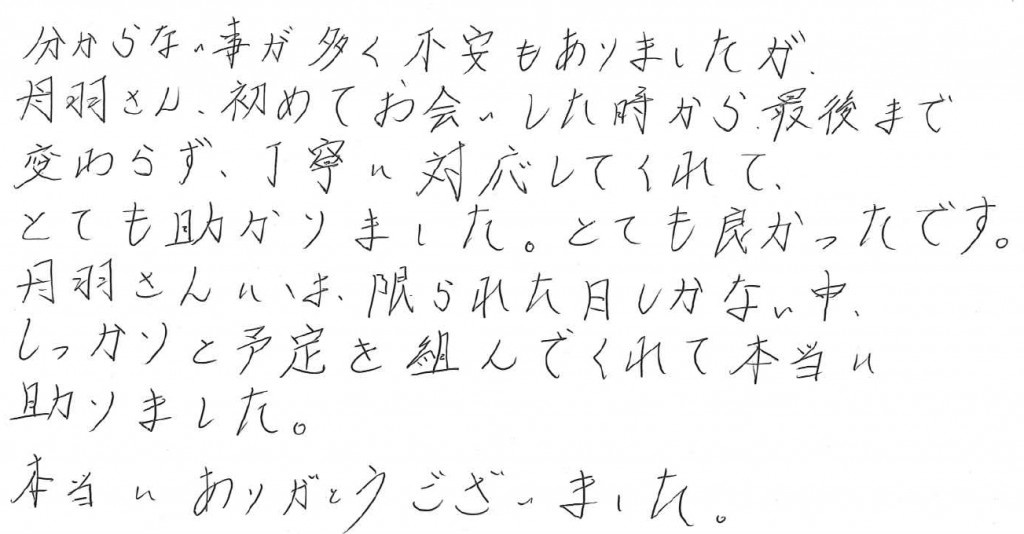 分からない事が多く不安もありましたが、
丹羽さん、初めてお会いした時から、最後まで
変わらず、丁寧に対応してくれて、
とても助かりました。とても良かったです。
丹羽さんには、限られた日しかない中、
しっかりと予定を組んでくれて本当に
助りました。
本当にありがとうございました。